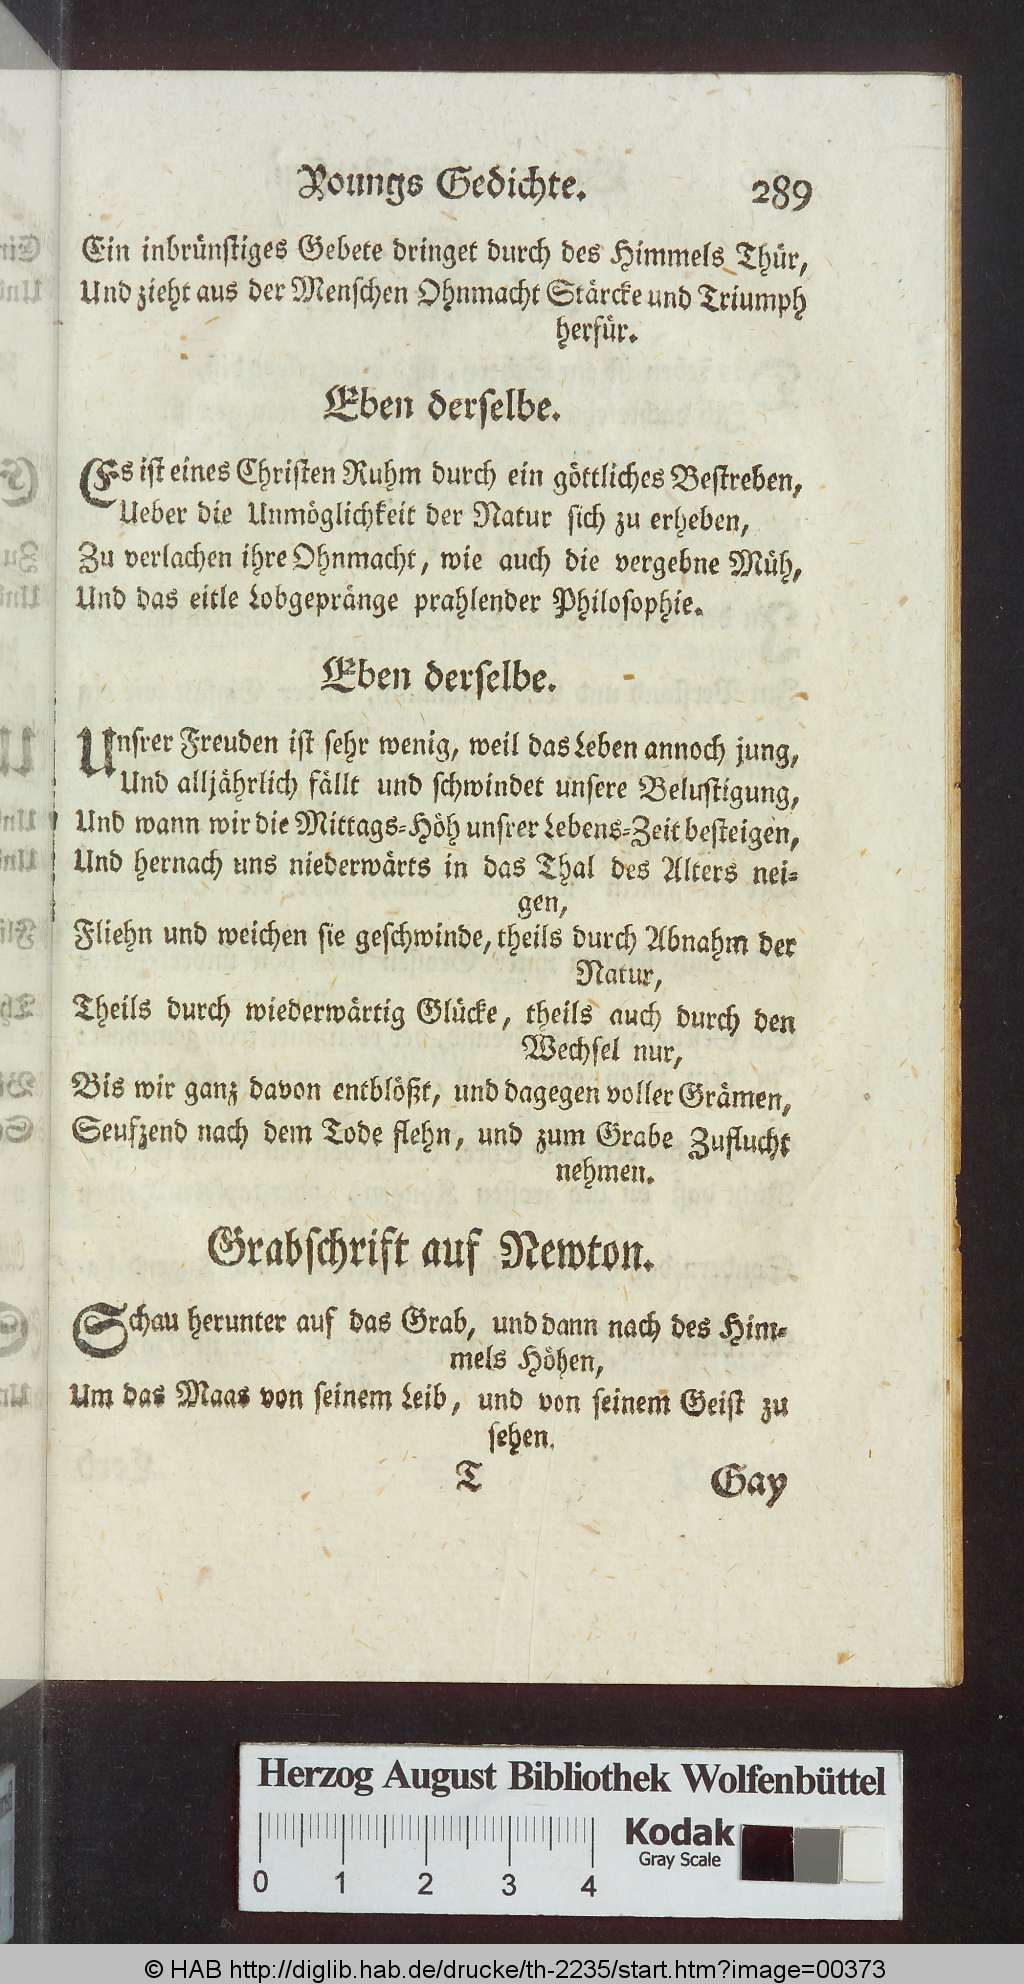 Youngs Gedichte. 289
Ein inbrünstiges Gebete dringet durch des Himmels Thür,
Und zieht aus der Menschen Ohnmacht Stärcke und Triumph
herfür.
Eben derselbe.
Es ist eines Christen Ruhm durch ein göttliches Bestreben,
Ueber die Unmöglichkeit der Natur sich zu erheben,
Zu verlachen ihre Ohnmacht, wie auch die vergebne Müh,
Und das eitle Lobgepränge prahlender Philosophie.
Eben derselbe.
Unsrer Freuden ist sehr wenig, weil das Leben annoch jung,
Und alljährlich fällt und schwindet unsere Belustigung,
Und wann wir die Mittags-Höh unsrer Lebens-Zeit besteigen,
Und hernach uns niederwärts in das Thal des Alters nei-
gen,
Fliehn und weichen sie geschwinde, theils durch Abnahm der
Natur,
Theils durch wiederwärtig Glücke, theils auch durch den
Wechsel nur,
Bis wir ganz davon entblößt, und dagegen voller Grämen,
Seufzend nach dem Tode flehn, und zum Grabe Zuflucht
nehmen.
Grabschrift auf Newton.
Schau herunter auf das Grab, und dann nach des Him-
mels Höhen,
Um das Maas von seinem Leib, und von seinem Geist zu
sehen.
T Gay
Herzog August Bibliothek Wolfenbüttel
Kodak
Gray Scale
0 1 2 3 4
© HAB http://diglib.hab.de/drucke/th-2235/start.htm?image=00373